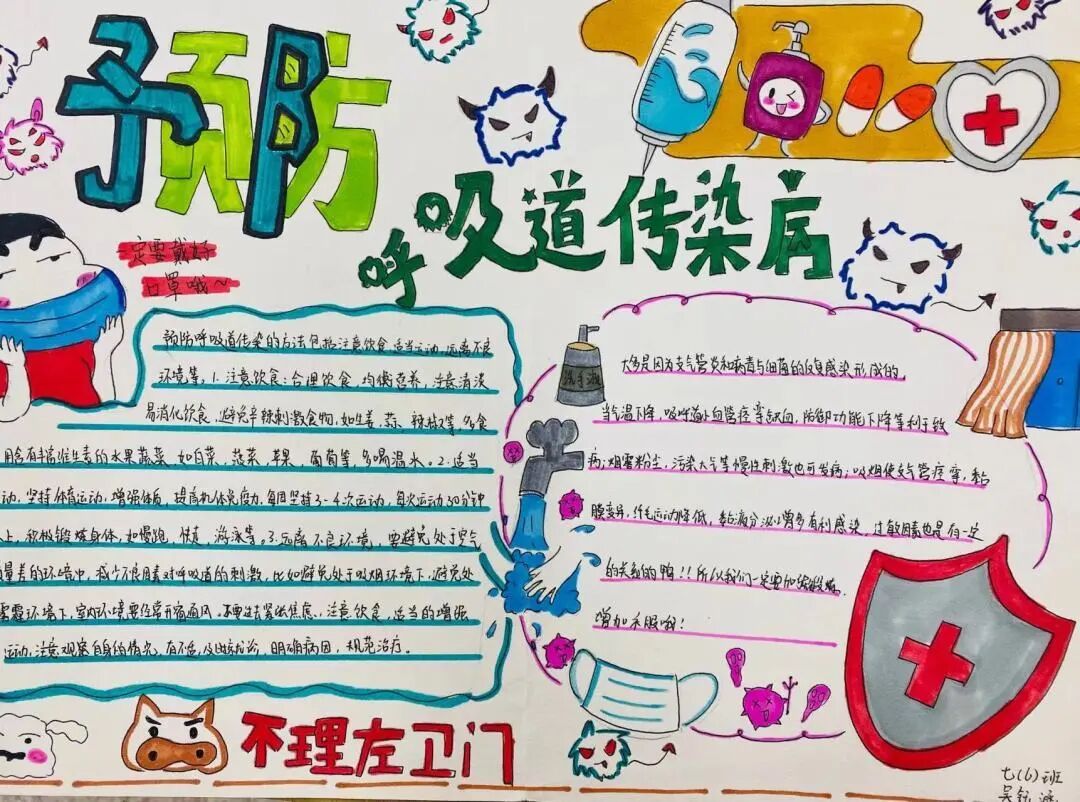 预防
呼吸道传染病
一定要戴好
口罩哦~
预防呼吸道传染的方法包括注意饮食,适当运动,远离不良
环境等。1.注意饮食:合理饮食,均衡营养,注意清淡
易消化饮食,避免辛辣刺激食物,如生姜、蒜、辣椒等,多食
用含有丰富维生素的水果蔬菜,如白菜、菠菜、苹果、葡萄等,多喝温水。2.适当
动,坚持体育运动,增强体质,提高机体免疫力,每周坚持3-4次运动,每次运动30分钟
上,积极锻炼身体,如慢跑、快走、游泳等。3.远离不良环境,要避免处于空气
量差的环境中,减少不良因素对呼吸道的刺激,比如避免处于吸烟环境下,避免处
雾霾环境下,室内环境要经常开窗通风。不要过去紧张焦虑,注意饮食,适当的增强
运动,注意观察自身的情况,有不适,及时就诊,明确病因,规范治疗。
洗手液
大多是因为支气管炎和病毒与细菌的反复感染形成的。
当气温下降,呼吸道小血管痉挛缺血,防御功能下降等利于致
病;烟雾粉尘,污染大气等慢性刺激也可发病;吸烟使支气管痉挛,黏
膜变异,纤毛运动降低,黏液分泌增多有利感染,过敏因素也是有一定
的关系的鸭!!所以我们一定要加强锻炼,
增加衣服哦!
不理左卫门
七(6)班
吴